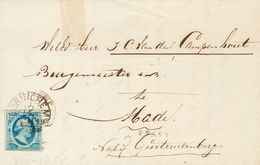 WelEd. Heer J C Van den Campenhout
Burgemeester van
te
Made
nabij Geertruidenberg.
GORINCHEM